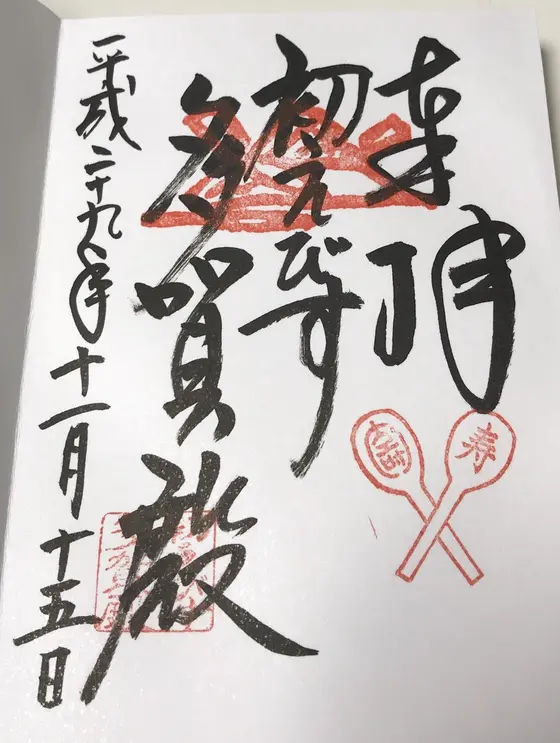 奉拝
初えびす
多賀殿
平成二十九年十一月十五日
寿